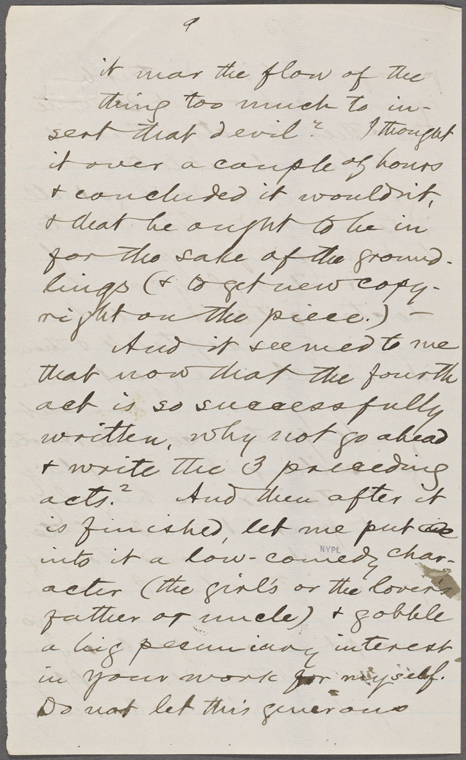 9
it mar the flow of the
thing too much to in-
sert that devil? I thought
it over a couple of hours
& concluded it wouldn't,
& that he ought to be in
for the sake of the ground-
lings (& to get new copy-
right on the piece.) —
And it seemed to me
that now that the fourth
act is so successfully
written, why not go ahead
& write the 3 preceding
acts? And then after it
is finished, let me put
into it a low-comedy char-
acter (the girl's or the lover's
father or uncle) & gobble
a big pecuniary interest
in your work for myself.
Do not let this generous
NYPL